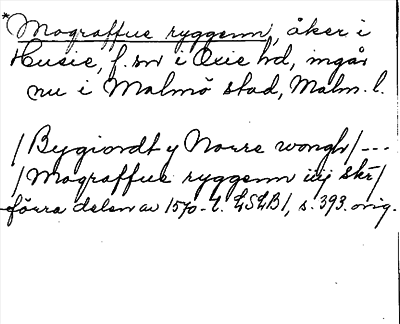 *Mograffue ryggenn, åker i
Husie, f. sn i Oxie hd, ingår
nu i Malmö stad, Malm. l.
/Bygiordt y Norre wongh/---
/Mograffue ryggenn iiij skr/
förra delen av 1570-t. LSLB1, s. 393. orig.